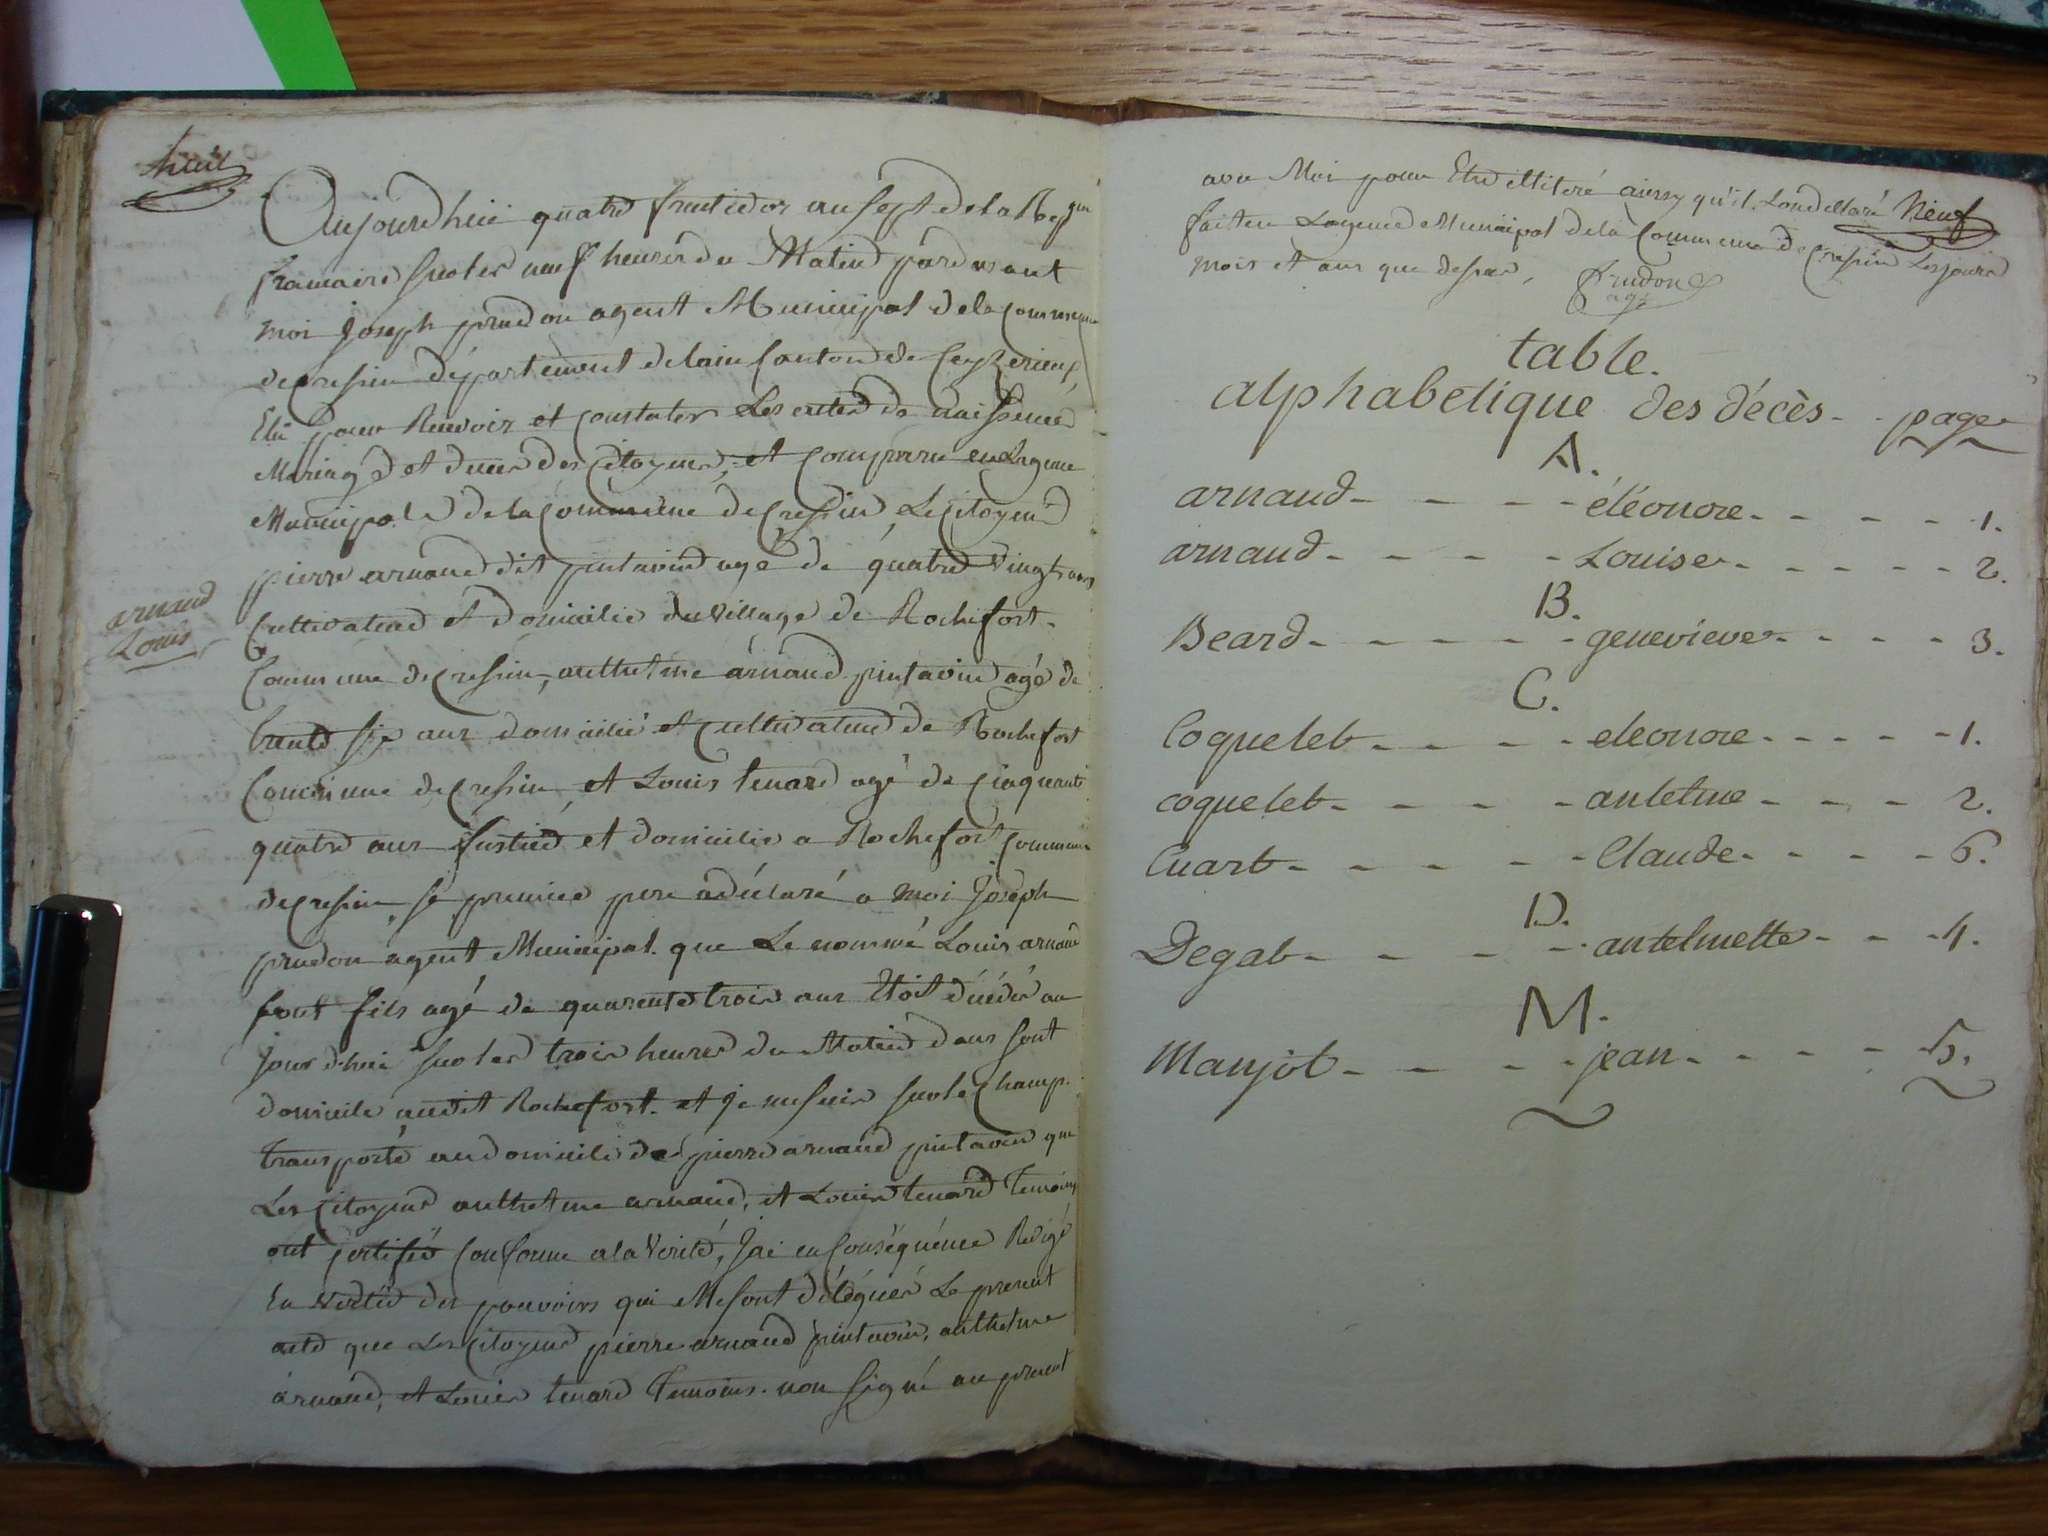 huit
Aujourdhui quatre fructidor an sept de la Rep.que
francaise sur les neuf heures du Matin pardevant
moi Joseph prudon agent Municipal de la commune
de cressin département de lain canton de Ceyzerieux
Elu pour Recevoir et constater Les actes de naissence
Mariage et deces des Citoyens, et comparu en Lagence
Municipale de la commune de Cressin Le Citoyen
pierre arnaud dit pintavin agé de quatre vingt ans
Cultivateur et domicilié du village de Rochefort
arnaud
Louis
Commune de Cressin, anthelme arnaud pintavin agé de
trente six ans domicilié et Cultivateur de Rochefort
Commune de Cressin, et Louis tenard agé de cinquante
quatre ans et domicilié a Rochefort commune
de Cressin, se premier pere a déclaré a moi Joseph
prudon agent Municipal que Le nommé Louis arnaud
sont fils agé de quarente trois ans Etoit décédé au
jourdhui sur les trois heures du Matin dans sont
domicile audit Rochefort. et je me suis sur le champ
transporté au domicile de pierre arnaud pintavin que
Les Citoyens anthelme arnaud, et Louis tenard Temoins
ont certifié conforme a la Verité, Jai en Conséquence Redigé
En Vertue des pouvoirs qui Me sont délégués Le present
acte que Les Citoyens pierre arnaud pintavin, anthelme
arnaud, et Louis tenard Temoins non signé au present
avec Moi pour Etre illiteré ainsy qu'il Lont declaré Neuf
fait en Lagence Municipal de la Commune de Cressin Les jours
mois et ans que dessus, prudon
agt
table.
alphabetique des décès - - page
A.
arnaud - - - - éléonore - - - - 1.
arnaud - - - - Louise - - - - - 2.
B.
Beard - - - - - genevieve - - - - 3.
C.
Coquelet - - - - eleonore - - - - - 1.
coquelet - - - - antelme - - - 2.
Cuart - - - - - Claude - - - - 6.
D.
Degat - - - - - antelmette - - - 4.
M.
Manjot - - - - jean - - - - 5.